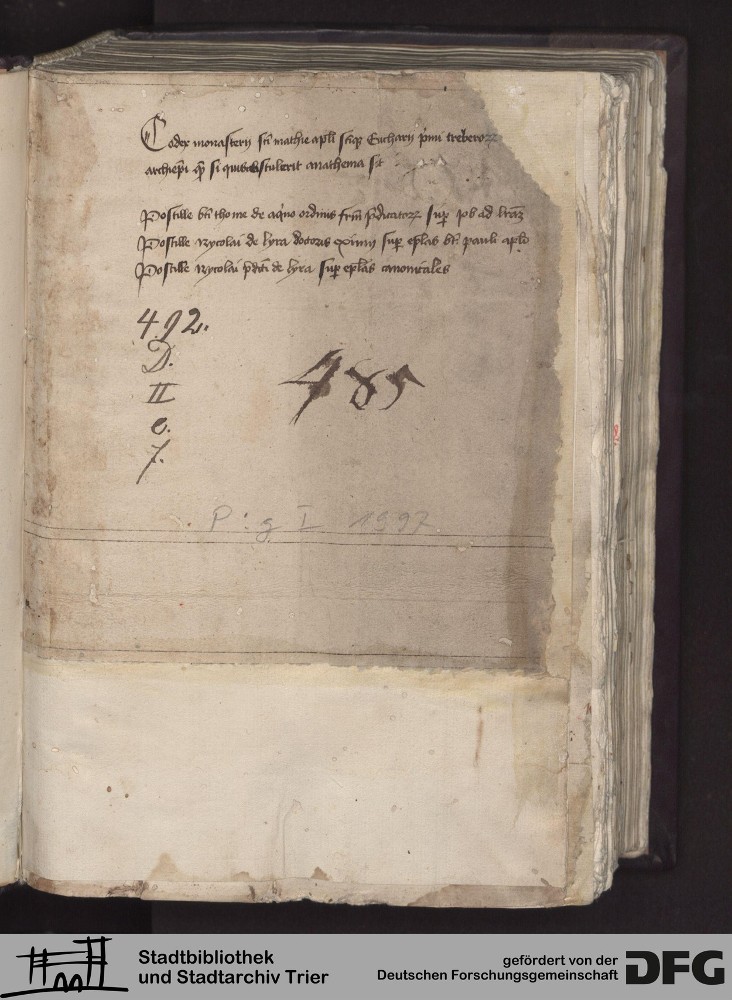 Codex monasterij sci mathie apli sciq Eucharij pmi treberorz
archiepi qm si quis abstulerit anathema sit
Postille bti thome de aquo ordinis frm pdicatorz sup iob ad lraz
Postille nycolai de lyra doctoris eximij sup eplas bti pauli apli
Postille nycolai pdcti de lyra sup eplas canonicales
492.
D.
II
e.
7.
485
P: g I 1997
Stadtbibliothek
und Stadtarchiv Trier
gefördert von der
Deutschen Forschungsgemeinschaft
DFG